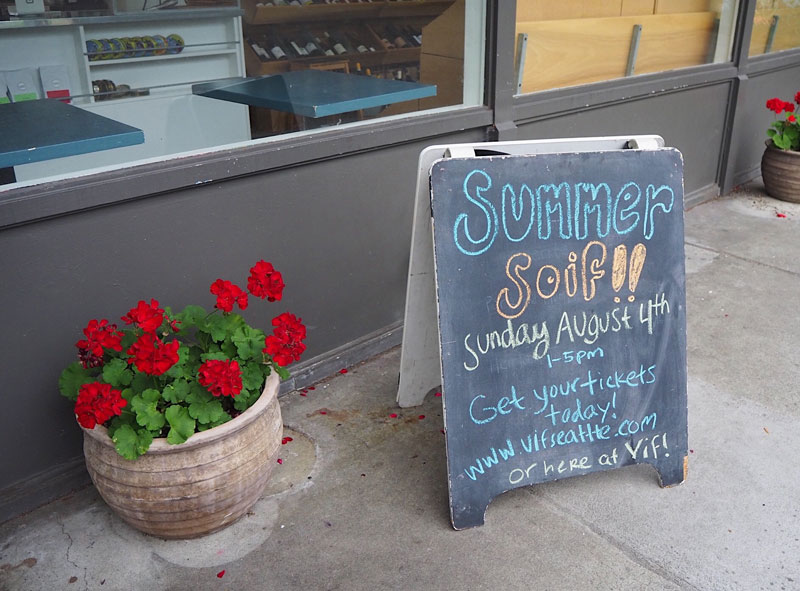 Summer
Soif!!
Sunday August 4th
1-5pm
Get your tickets
today!
www.vifseattle.com
or here at Vif!